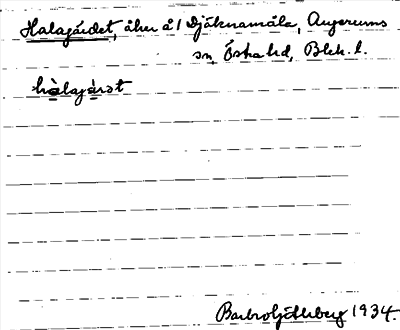 Halagärdet, åker å 1 Djäknamåla, Augerums
sn, Östra hd, Blek. l.
hàlagárdt
Barbro Götherberg 1934.